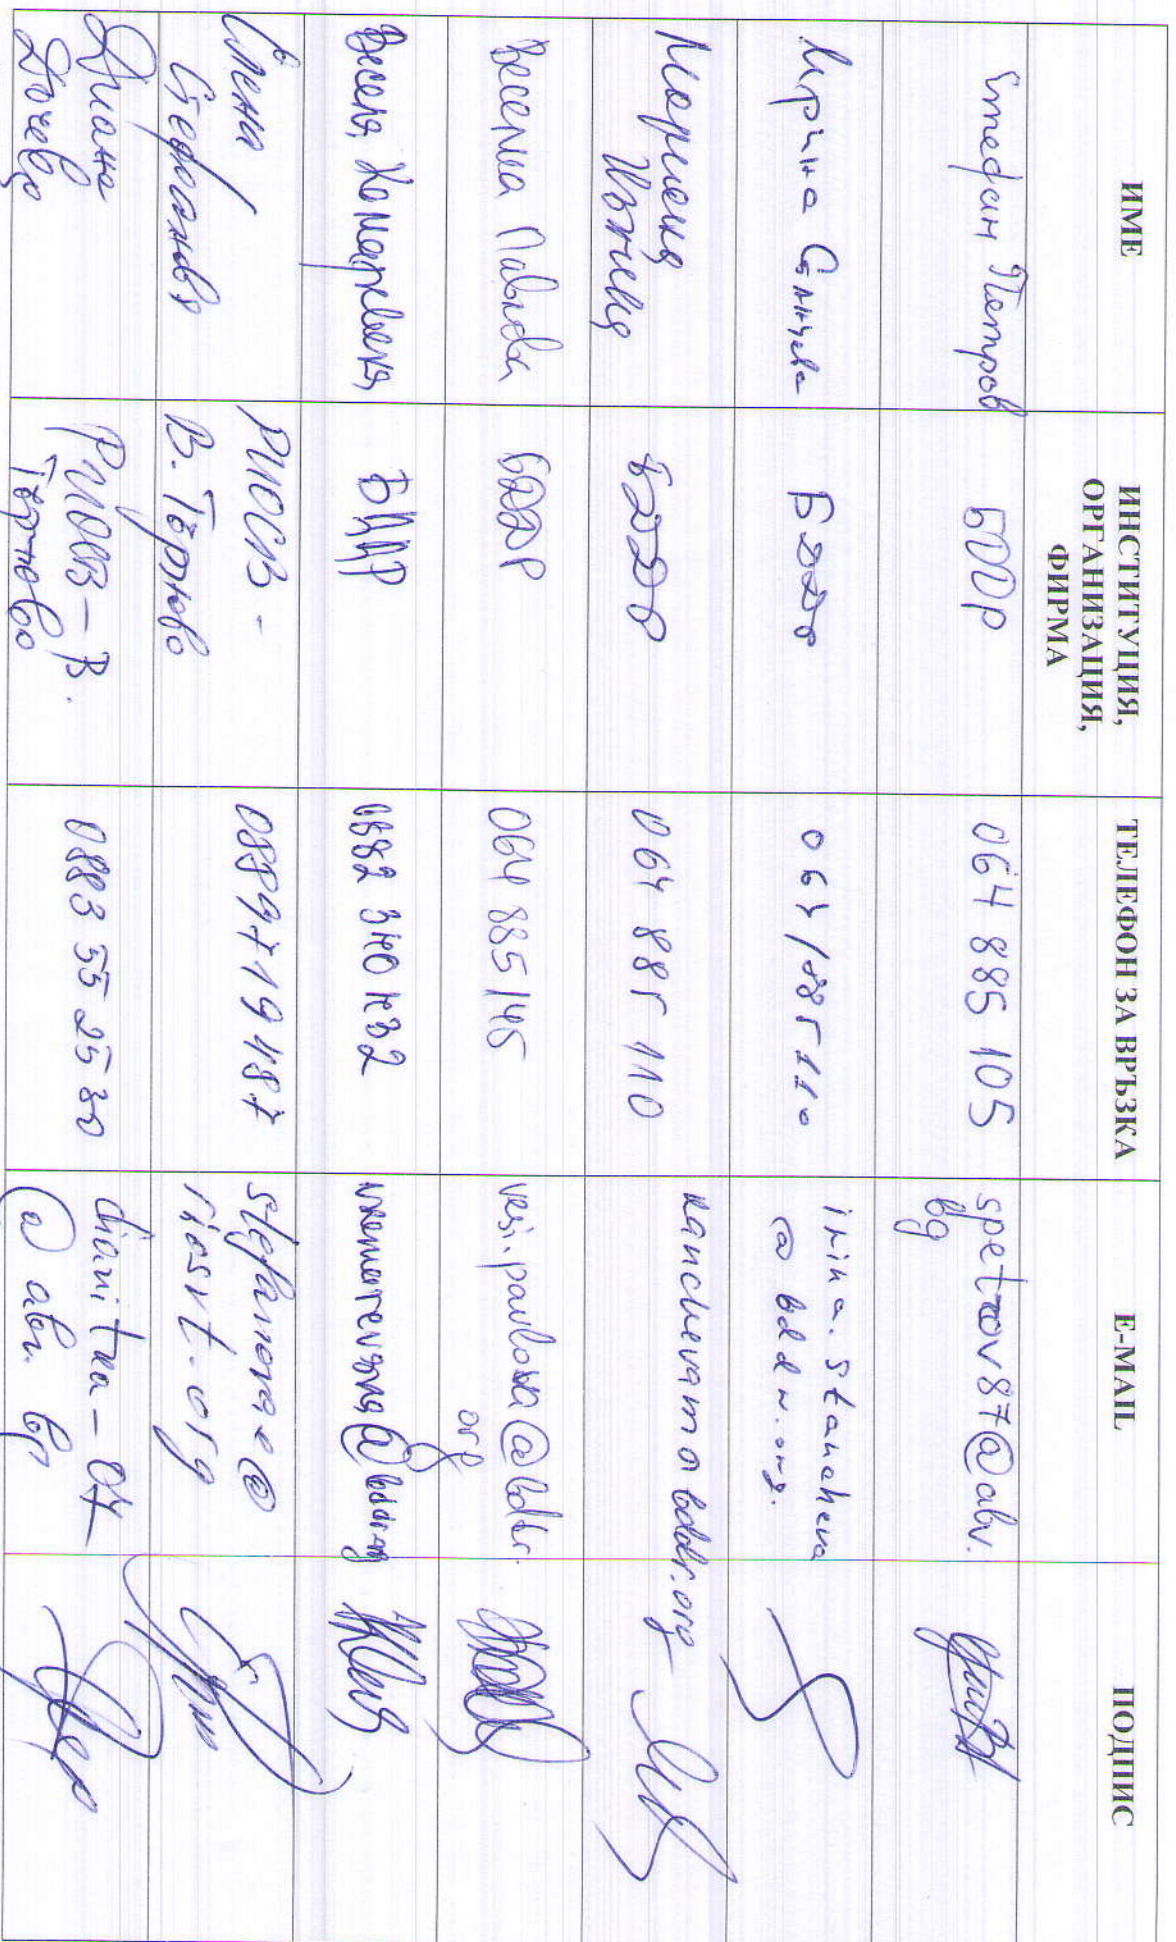 ИМЕ
ИНСТИТУЦИЯ,
ОРГАНИЗАЦИЯ,
ФИРМА
ТЕЛЕФОН ЗА ВРЪЗКА
E-MAIL
ПОДПИС
Стефан Петров
БДДР
064 885 105
spetrov87@abv.
bg
Ирина Станчева
БДДР
064/885110
irina.stancheva
@bddr.org.
Мариета
БДДР
064 885 110
Веселина Павлова
БДДР
064 885145
vesi.pavlova@bddr.
org
Весела Комаревска
БДДР
Елена
Стефанова
РИОСВ -
В. Търново
0889719487
stefanova e@
riosvt.org
Диана
Дочева
РИОСВ - В.
Търново
0883 55 25 30